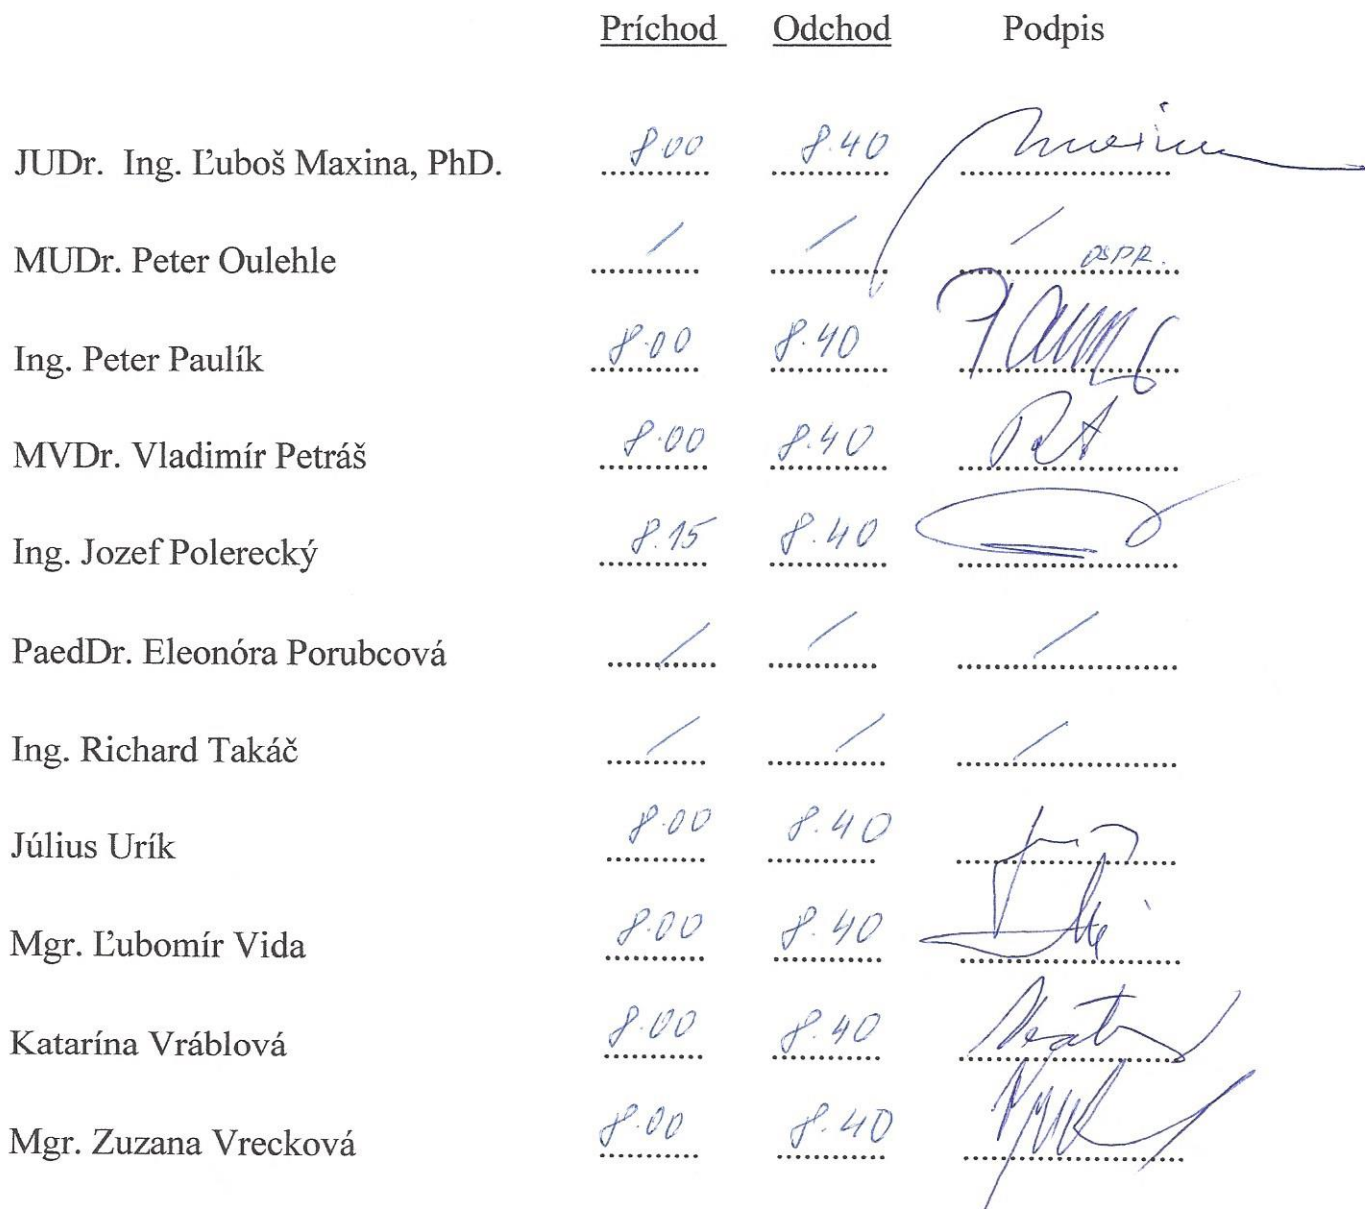 Príchod Odchod Podpis
JUDr. Ing. Ľuboš Maxina, PhD. 8.00 8.40
MUDr. Peter Oulehle / / / OSPR.
Ing. Peter Paulík 8.00 8.40
MVDr. Vladimír Petráš 8.00 8.40
Ing. Jozef Polerecký 8.15 8.40
PaedDr. Eleonóra Porubcová / / /
Ing. Richard Takáč / / /
Július Urík 8.00 8.40
Mgr. Ľubomír Vida 8.00 8.40
Katarína Vráblová 8.00 8.40
Mgr. Zuzana Vrecková 8.00 8.40